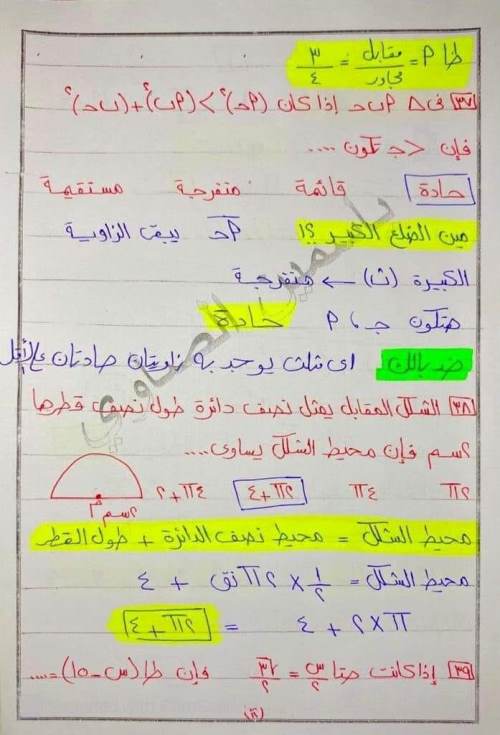 طا م = مقابل / مجاور = ٣ / ٤
٣٧ فى △ م ب ح إذا كان (م ح)² > (م ب)² + (ب ح)²
فإن < ج تكون ....
حادة قائمة منفرجة مستقيمة
مين الضلع الكبير ؟! م ح يبقى الزاوية
الكبيرة (ب) ← منفرجة
هتكون ج ، م حادة
خد بالك اى مثلث يوجد به زاويتان حادتان على الأقل
٣٨ الشكل المقابل يمثل نصف دائرة طول نصف قطرها
٢سم فإن محيط الشكل يساوى ....
π٢ π٤ ٤+π٢ ٢+π٤
٢سم م
محيط الشكل = محيط نصف الدائرة + طول القطر
محيط الشكل = ١/٢ × π٢ نق + ٤
π × ٢ + ٤ = π٢ + ٤
٣٩ إذا كانت حتا س/٢ = √٣/٢ فإن طا (س - ١٥) = ....
ياسمين الصاوي